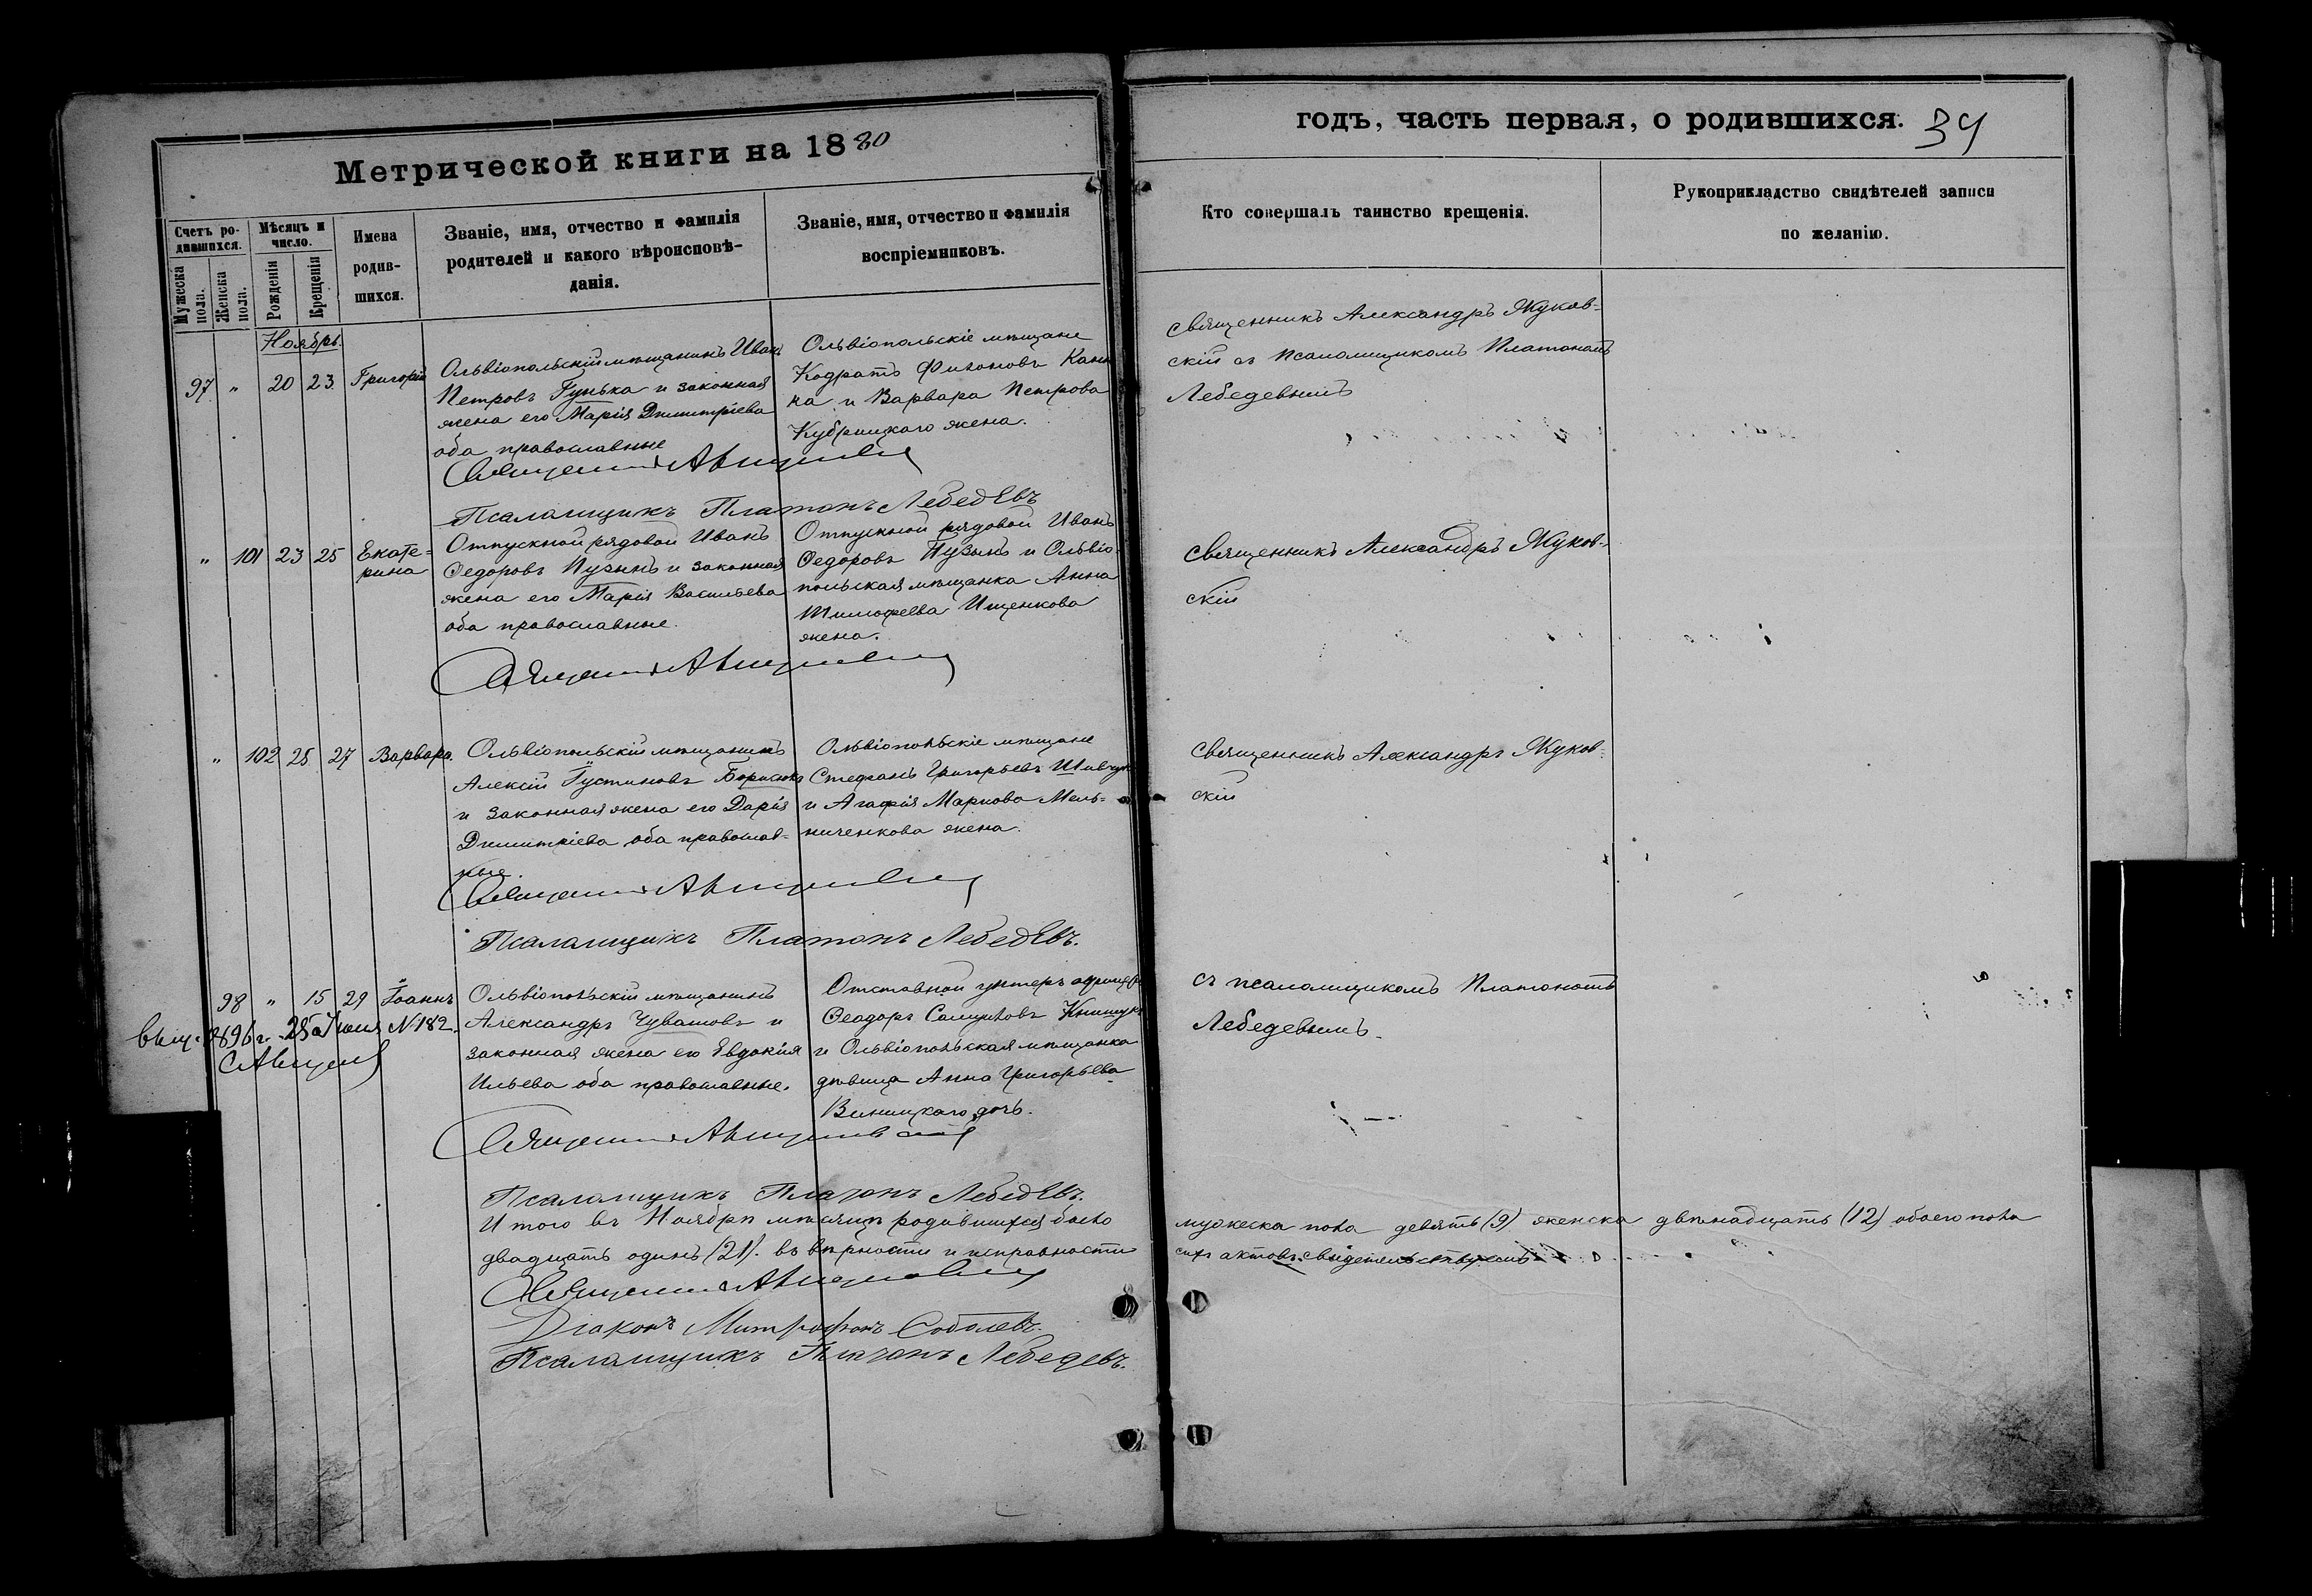 Метрической книги на 1880
годъ, часть первая, о родившихся.
34
Счетъ ро-
дившихся.
Мужеска
пола.
Женска
пола.
Мѣсяцъ и
число.
Рожденія
Крещенія
Имена
родив-
шихся.
Званіе, имя, отчество и фамилія
родителей и какого вѣроисповѣ-
данія.
Званіе, имя, отчество и фамилія
воспріемниковъ.
Кто совершалъ таинство крещенія.
Рукоприкладство свидѣтелей записи
по желанію.
Ноябрь.
97 " 20 23 Григорій
Ольвіопольскій мѣщанинъ Иванъ
Петровъ Гунька и законная
жена его Марія Димитріева
оба православные
Ольвіопольскіе мѣщане
Кодратъ
и Варвара Петрова
Кубрицкаго жена.
Священникъ Александръ Жуков-
скій съ псаломщикомъ Платономъ
Лебедевымъ
Священникъ
Псаломщикъ Платонъ Лебедевъ
" 101 23 25 Екате-
рина
Отпускной рядовой Иванъ
Ѳедоровъ Пузынъ и законная
жена его Марія Васильева
оба православные.
Отпускной рядовой Иванъ
Ѳедоровъ Пузынъ и Ольвіо
польская мѣщанка Анна
Тимофеева Ищенкова
жена.
Священникъ Александръ Жуков-
скій
Священникъ
" 102 25 27 Варвара.
Ольвіопольскій мѣщанинъ
Алексій Іустиновъ Борисюкъ
и законная жена его Дарія
Димитріева оба православ-
ные.
Ольвіопольскіе мѣщане
Стефанъ Григорьевъ
и Агафія Маркова Мель-
ниченкова жена.
Священникъ Александръ Жуков-
скій
Священникъ
Псаломщикъ Платонъ Лебедевъ.
98 " 15 29 Іоаннъ
Ольвіопольскій мѣщанинъ
Александръ Чувашовъ и
законная жена его Евдокія
Ильева оба православные.
Отставной унтеръ офицеръ
Ѳеодоръ Самуиловъ Книшукъ
и Ольвіопольская мѣщанка
дѣвица Анна Григорьева
Виницкаго дочь.
съ псаломщикомъ Платономъ
Лебедевымъ.
1896 г. 25 Іюня N 182.
Священникъ
Псаломщикъ Платонъ Лебедевъ.
Итого въ Ноябрѣ мѣсяцѣ родившихся было мужеска пола девять (9) женска двѣнадцать (12) обоего пола
двадцать одинъ (21). въ вѣрности и исправности сихъ актовъ свидетельствуемъ
Священникъ
Діаконъ Митрофанъ Соболевъ.
Псаломщикъ Платонъ Лебедевъ.